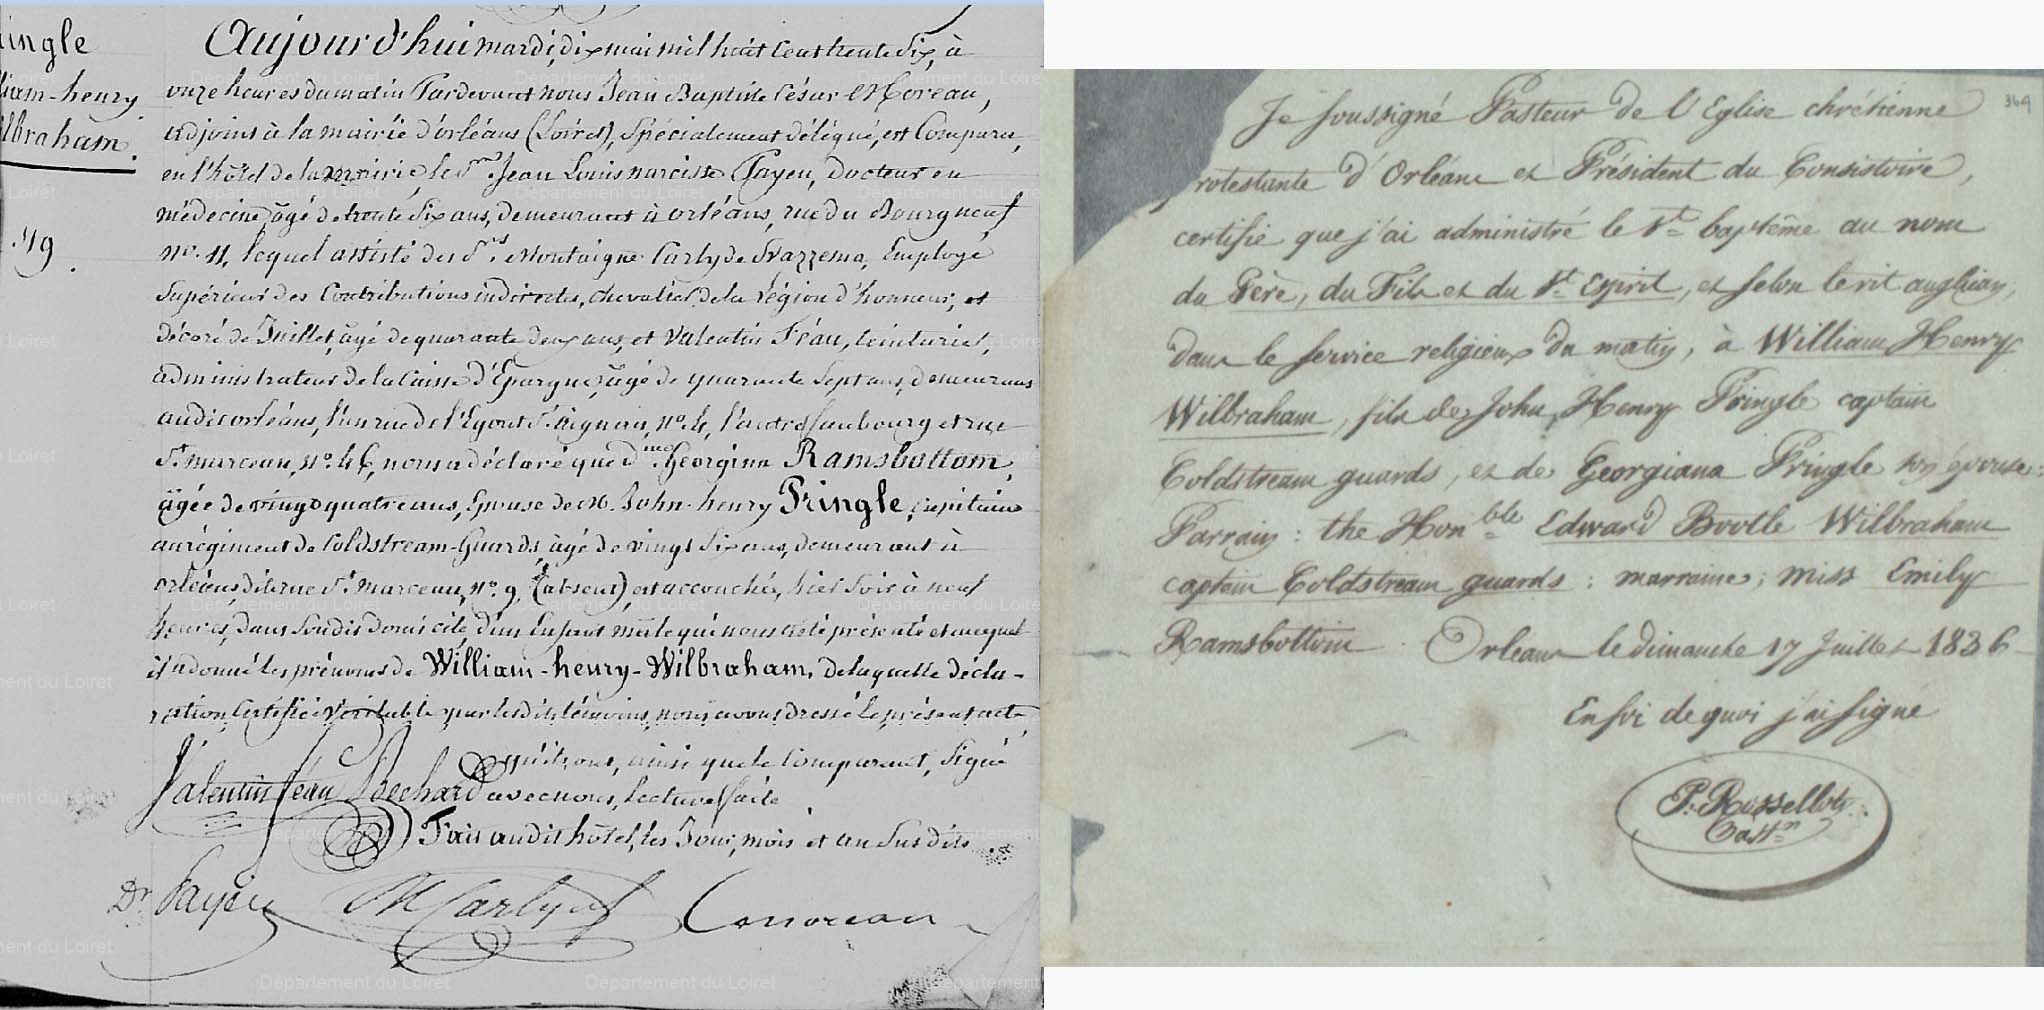 ringle
lliam-henry
ilbraham.
519.
Aujourd'hui mardi, dix mai mil huit cent trente Six, à
onze heures du matin Pardevant nous Jean Baptiste César Moreau,
adjoint à la mairie d'orléans (Loiret), Spécialement délégué, est Comparu,
en l'hôtel de la mairie, le Sr. Jean Louis narcisse Payen, Docteur en
médecine, âgé de trente Six ans, demeurant à orléans, rue du Bourg neuf
no. 11, lequel assisté des Srs. Montaigne Carly de Svazzema, Employé
Supérieur des Contributions indirectes, chevalier de la légion d'honneur, et
décoré de Juillet, âgé de quarante deux ans, et Valentin Féau, teinturier,
administrateur de la Caisse d'Epargne, âgé de quarante Sept ans, demeurans
audit orléans, l'un rue de l'Egout St. Aignan, no. 4, l'autre faubourg et rue
St. marceau, no. 46, nous a déclaré que de. Georgina Ramsbottom,
âgée de vingt quatre ans, Epouse de M. John-henry Pringle, Capitaine
au régiment de Coldstream-Guards, âgé de vingt Six ans, demeurant à
orléans dite rue St. marceau, no. 9, (absent), est accouchée, hier Soir à neuf
heures, dans Son dit domicile, d'un Enfant mâle qui nous a été présenté et auquel
il a donné les prénoms de William-henry-Wilbraham, de laquelle décla-
ration, Certifiée Véritable par lesdits témoins, nous avons dressé le présent acte
qu'ils ont, ainsi que le Comparant, Signé
Valentin féau Bechard avec nous, lecture faite.
Fait audit hôtel, les Jour, mois et an Susdits
Dr Payen M Carly Moreau
364
Je soussigné Pasteur de l'Eglise chrétienne
rotestante d'Orléans et Président du Consistoire,
certifie que j'ai administré le St. baptême au nom
du Père, du Fils et du St. Esprit, et selon le rit anglican,
dans le service religieux du matin, à William Henry
Wilbraham, fils de John Henry Pringle captain
Coldstream guards, et de Georgiana Pringle son épouse:
Parrain: the Honble Edward Bootle Wilbraham
captain Coldstream guards: marraine; miss Emily
Ramsbottom. Orléans le dimanche 17 Juillet 1836
En foi de quoi j'ai signé
P. Rossellotty
Pastr
Département du Loiret